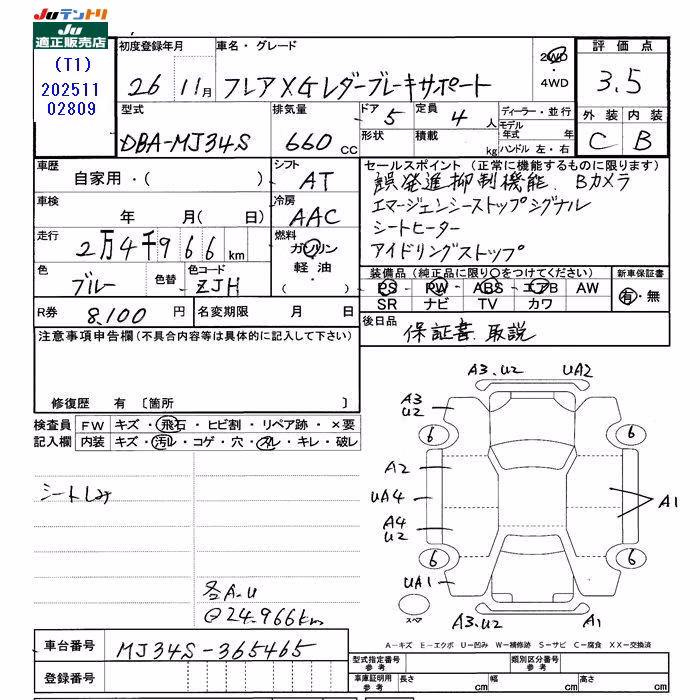 JUテントリ
JU
適正販売店
(T1)
202511
02809
初度登録年月 車名・グレード 2WD・4WD 評価点
26 11月 フレア XGレダーブレーキサポート 3.5
型式 排気量 ドア 5 定員 4人 ディーラー・並行 外装 内装
DBA-MJ34S 660cc 形状 積載 kg モデル年式 年 C B
ハンドル 左・右
車歴 シフト セールスポイント (正常に機能するものに限ります)
自家用・( ) AT 誤発進抑制機能. Bカメラ
車検 冷房 エマージェンシーストップシグナル
年 月( 日) AAC シートヒーター
走行 燃料 アイドリングストップ
2万4千966km ガソリン
軽油・
( )
色 色替 色コード 装備品 (純正品に限り○をつけてください) 新車保証書
ブルー ZJH PS PW ABS エアB AW 有・無
SR ナビ TV カワ
R券 8,100円 名変期限 月 日 後日品
保証書. 取説
注意事項申告欄 (不具合内容等は具体的に記入して下さい)
修復歴 有 〔箇所 〕
検査員 FW キズ・飛石・ヒビ割・リペア跡・×要
記入欄 内装 キズ・汚レ・コゲ・穴・スレ・キレ・破レ
シートしみ
各A.U
@24.966km
A3.U2 UA2
A3
U2
6 6
A2
UA4 A1
A4
U2
6 6
UA1
スペア A3.U2 A1
車台番号 MJ34S-365465
登録番号
A－キズ E－エクボ U－凹み W－補修跡 S－サビ C－腐食 XX－交換済
型式指定番号 参考 類別区分番号 参考
車庫証明用 参考 長さ cm 幅 cm 高さ cm